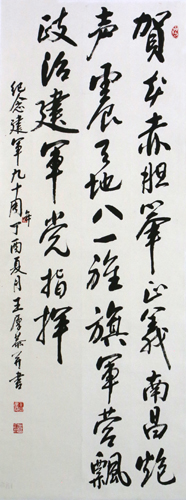 贺公赤胆举正义南昌炮
声震天地八一旌旗军营飘
政治建军党指挥
纪念建军九十周年
丁酉夏月王厚荣并书